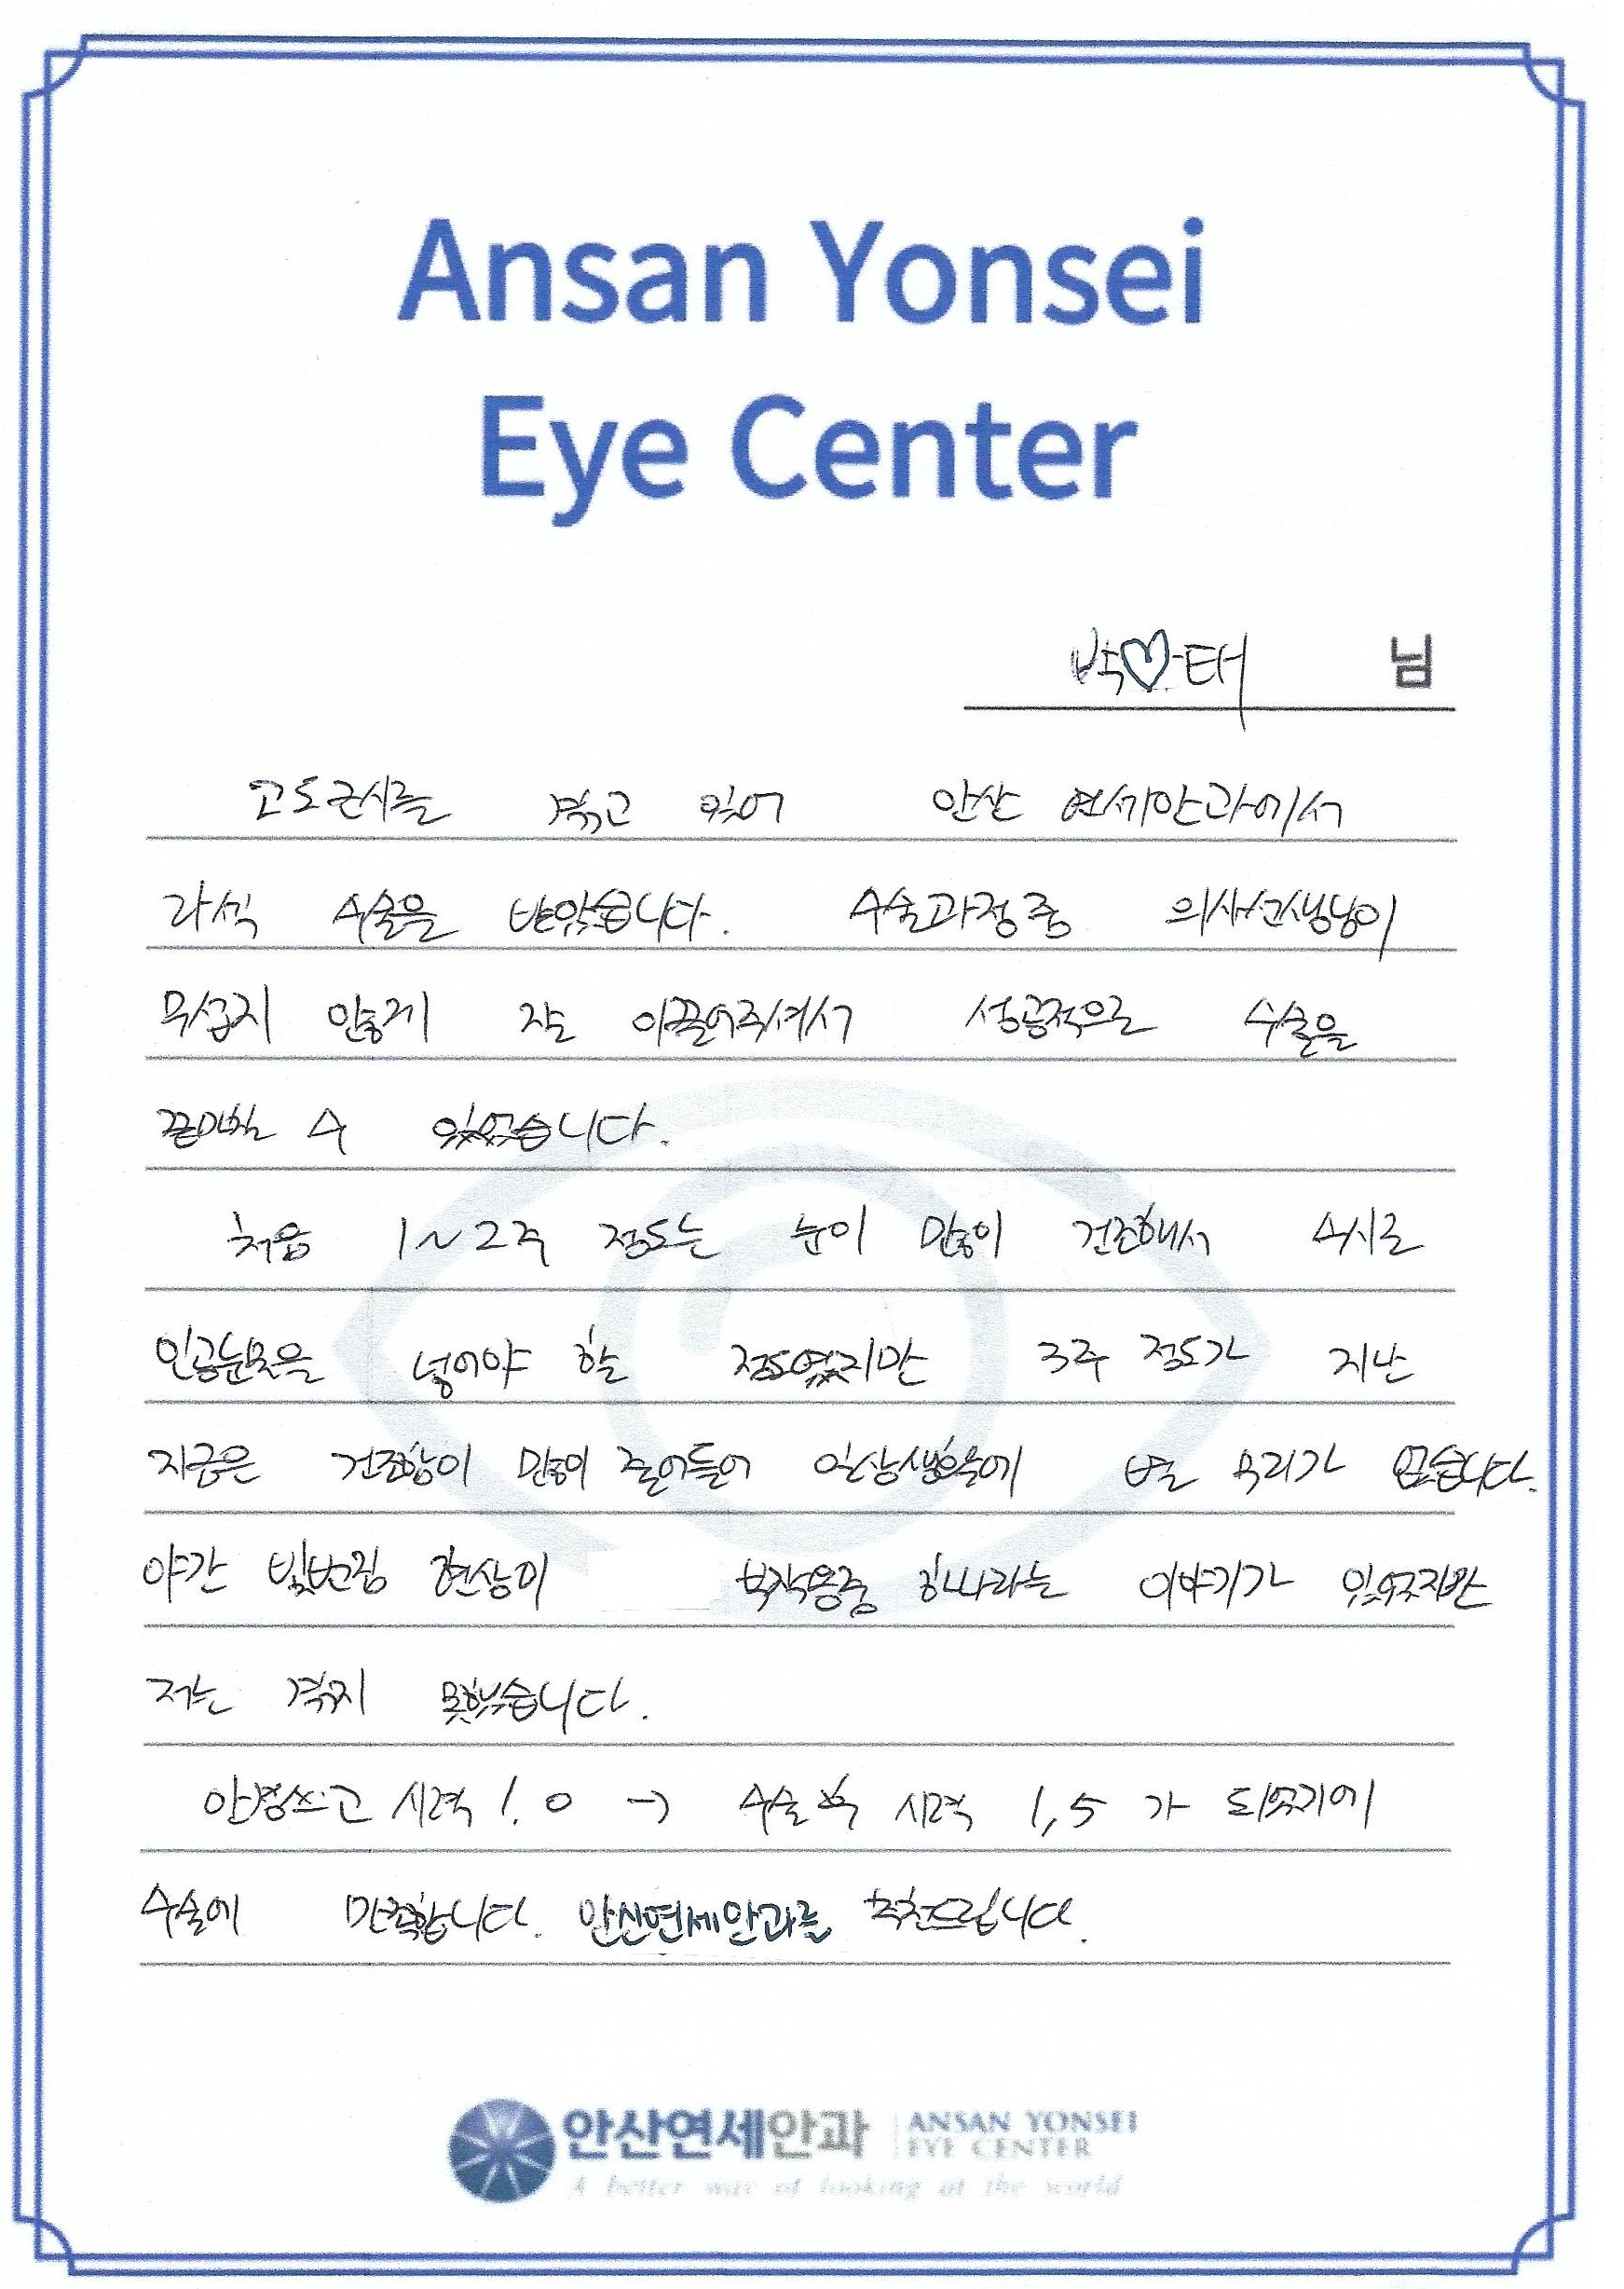 Ansan Yonsei
Eye Center
박♡태 님
고도근시를 겪고 있어 안산 연세안과에서
라식 수술을 받았습니다. 수술과정중 의사선생님이
무섭지 않게 잘 이끌어주셔서 성공적으로 수술을
끝마칠 수 있었습니다.
처음 1~2주 정도는 눈이 많이 건조해서 수시로
인공눈물을 넣어야 할 정도였지만 3주 정도가 지난
지금은 건조함이 많이 줄어들어 일상생활에 별 무리가 없습니다.
야간 빛번짐 현상이 부작용중 하나라는 이야기가 있었지만
저는 겪지 못했습니다.
안경쓰고 시력 1.0 → 수술 후 시력 1,5 가 되었기에
수술에 만족합니다. 안산연세안과를 추천드립니다.
안산연세안과 ANSAN YONSEI
EYE CENTER
A better way of looking at the world